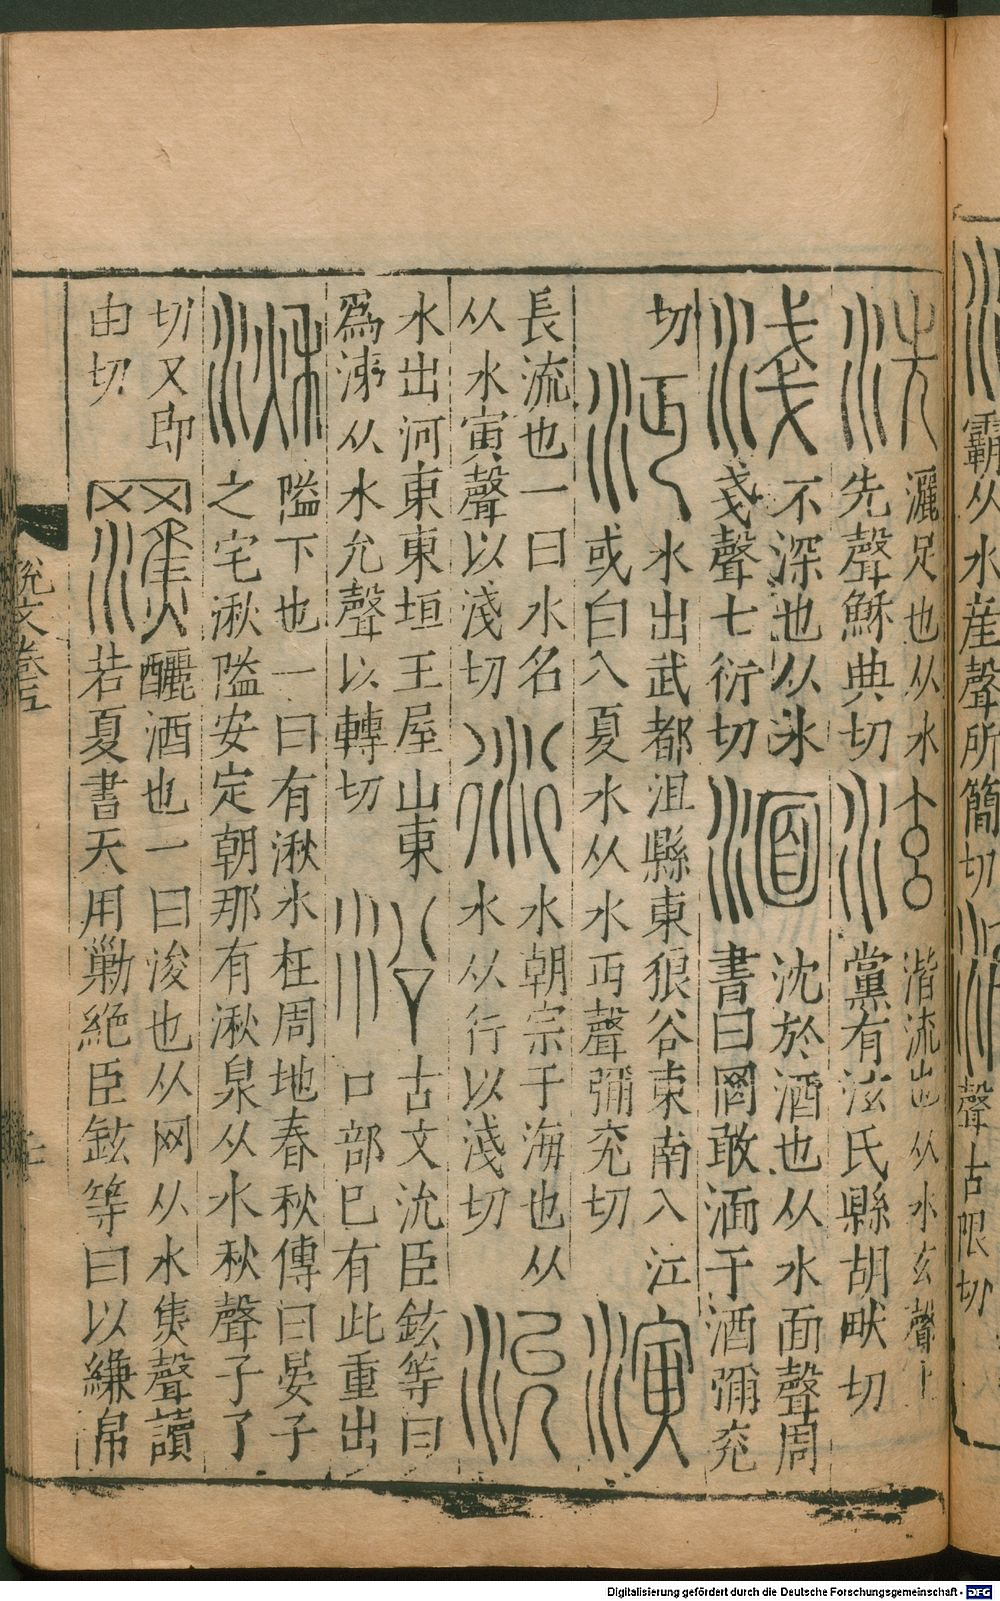 霸从水産聲所簡切
聲古限切
洗
灑足也从水
先聲穌典切
泫
湝流也从水玄聲上
黨有泫氏縣胡畎切
淺
不深也从水
戔聲七衍切
湎
沈於酒也从水面聲周
書曰罔敢湎于酒彌兖
切
沔
水出武都沮縣東狼谷東南入江
或白入夏水从水丏聲彌兖切
演
長流也一曰水名
从水寅聲以淺切
衍
水朝宗于海也从
水从行以淺切
沇
水出河東東垣王屋山東
爲泲从水允聲以轉切
沿
古文沇臣鉉等曰
口部已有此重出
湫
隘下也一曰有湫水在周地春秋傳曰晏子
之宅湫隘安定朝那有湫泉从水秋聲子了
切又即
由切
釃酒也一曰浚也从网从水焦聲讀
若夏書天用勦絶臣鉉等曰以縑帛
說文卷五
Digitalisierung gefördert durch die Deutsche Forschungsgemeinschaft - DFG